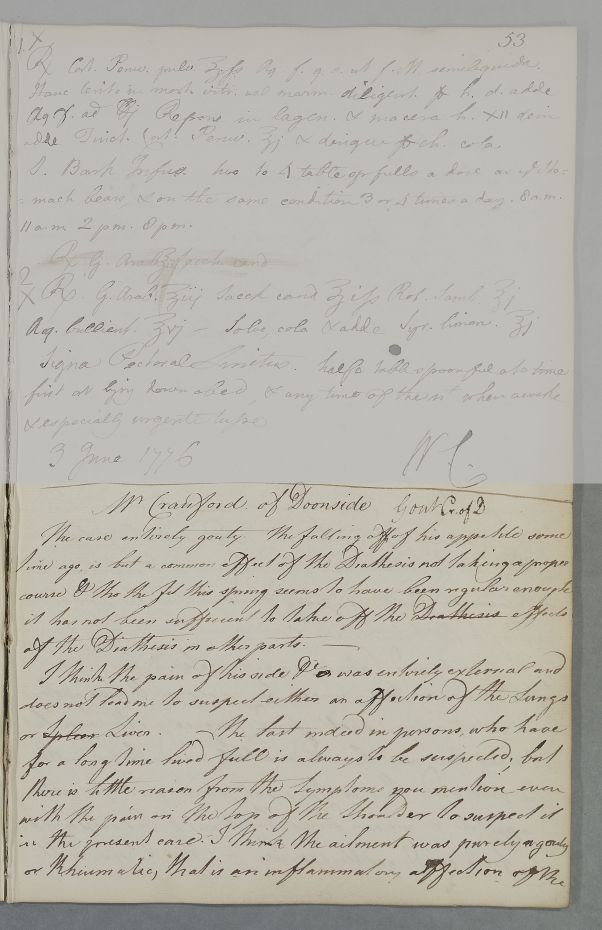 53
1. X
R Cort. Peruv. pulv. ʒjſs Aq. f. q. s. ut f. M semiliquida.
Hanc tento in mort. vitr. vel marm. diligent. p h. d. adde
Aq. f. ad ℔j Repone in lagen. & macera h. XII dein
adde Tinct. Cort. Peruv. ʒj & denique p ch. cola.
S. Bark Infus. two to 4 table spfulls a dose as Sto-
= mach bears, & on the same condition 3 or 4 times a day. 8 a.m.
11 a.m 2 pm. 8 pm.
R G. Arab. Sacch cand
2 X R. G. Arab. ʒiij Sacch cand ʒiſs Rob. Samb. ʒj
Aq. bullient. ʒvj — Solve, cola & adde Syr. limon. ʒj
Signa Pectoral Linctus. half a table spoonful at a time
first at lying down abed, & any time of the nt when awake
& especially urgente tusse
3 June 1776 W C.
Mr Crawford of Doonside Gout Cr. of D
The case entirely gouty the falling off of his appetite some
time ago, is but a common effect of the Diathesis not taking a proper
course & tho the fit this spring seems to have been regular enough
it has not been sufficient to take off the Diathesis effects
of the Diathesis in other parts. —
I think the pain of his side &c was entirely external and
does not lead me to suspect either an affection of the Lungs
or Spleen Liver. The last indeed in persons, who have
for a long time lived full is always to be suspected, but
there is little reason from the Symptoms you mention even
with the pain on the top of the Shoulder to suspect it
in the present case. I think the ailment was purely a gouty
or Rheumatic, that is an inflammatory affection of the